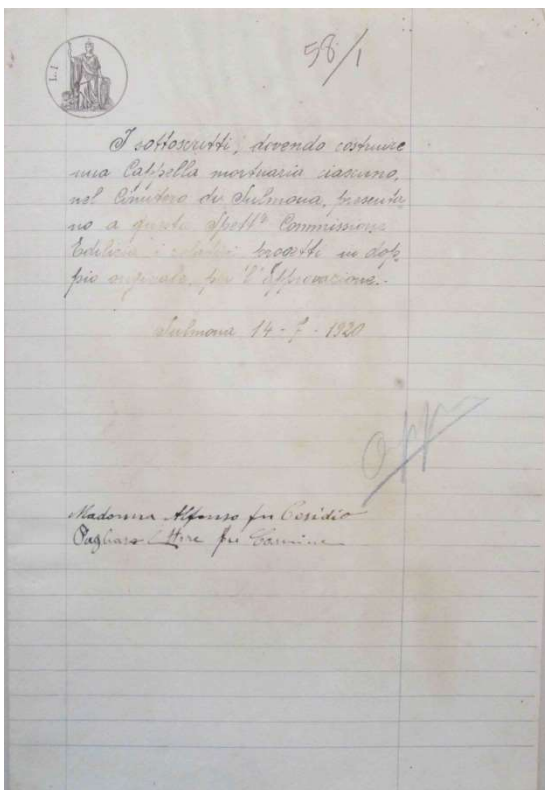 L. 1
58/1
I sottoscritti, dovendo costruire
una Cappella mortuaria ciascuno,
nel Cimitero di Sulmona, presenta
no a questa Spett.ª Commissione
Edilizia i relativi progetti in dop
pio originale, per l'approvazione.-
Sulmona 14-7-1920
Madonna Alfonso fu Cesidio
Pagliaro Ettore fu Carmine